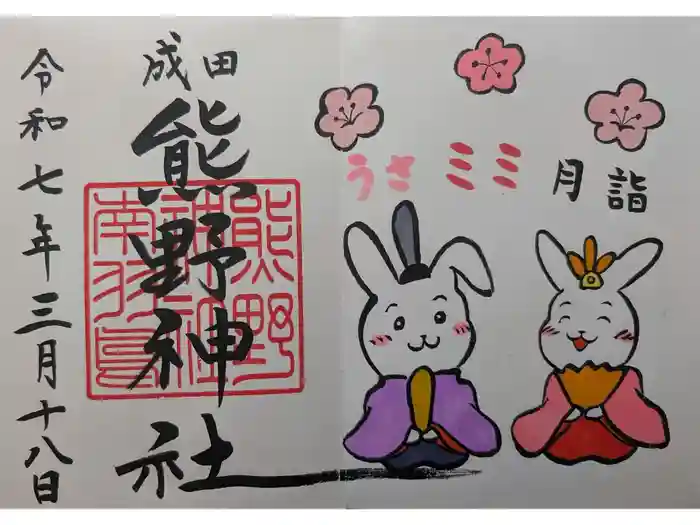 詣
月
ミミ
うさ
成田
熊野神社
熊野
神社
南羽鳥
令和七年三月十八日